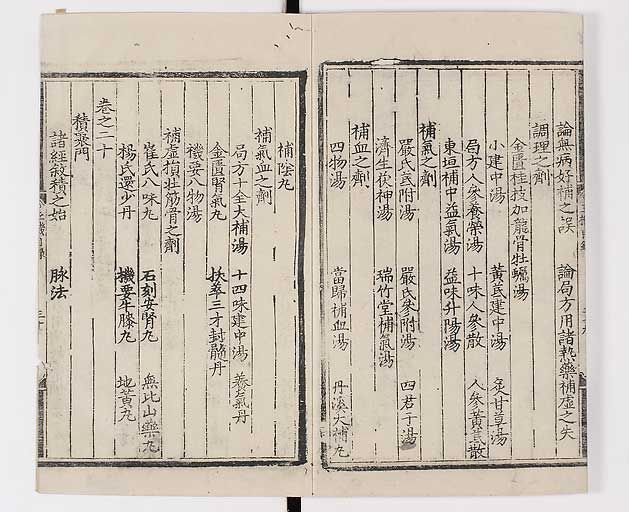 論無病好補之誤 論局方用諸熱藥補虛之失
調理之劑
金匱桂枝加龍骨牡蠣湯
小建中湯 黃芪建中湯 炙甘草湯
局方人參養榮湯 十味人參散 人參黃芪散
東垣補中益氣湯 益味升陽湯
補氣之劑
嚴氏芪附湯 嚴氏參附湯 四君子湯
濟生茯神湯 瑞竹堂補氣湯
補血之劑
四物湯 當歸補血湯 丹溪大補丸
補陰丸
補氣血之劑
局方十全大補湯 十四味建中湯 養氣丹
金匱腎氣丸 扶羸三才封髓丹
機要八物湯
補虛損壯筋骨之劑
崔氏八味丸 石刻安腎丸 無比山藥丸
楊氏還少丹 機要牛膝丸 地黃丸
卷之二十
積聚門
諸經敘積之始 脉法